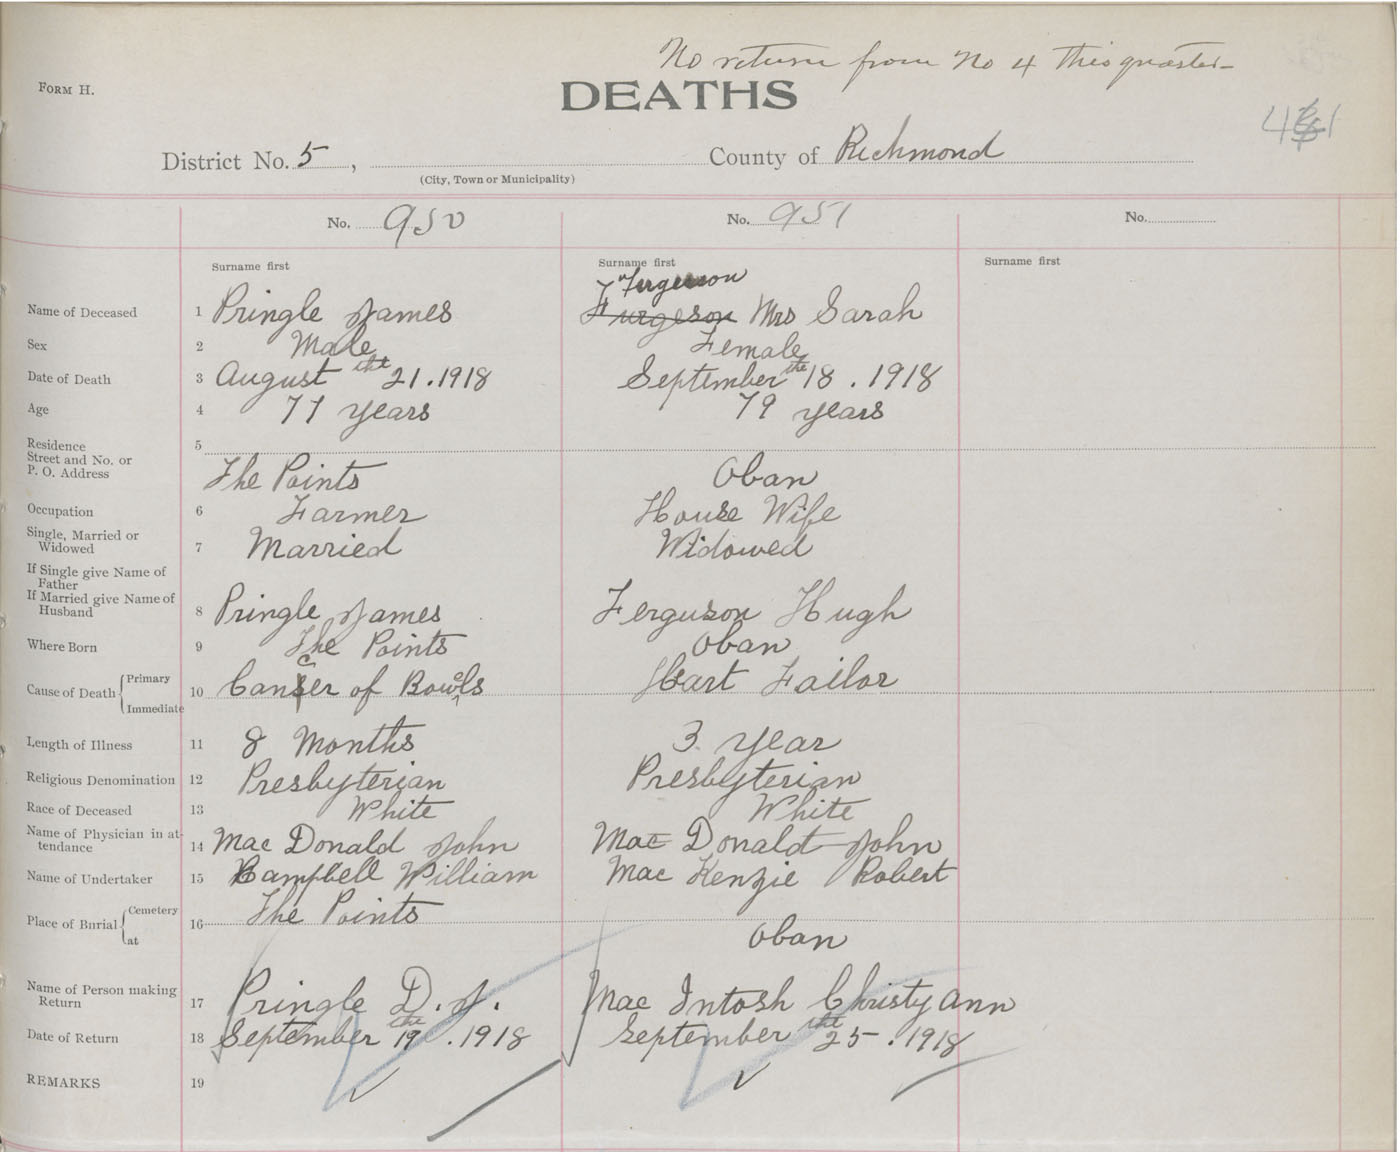 No return from No 4 this quarter
FORM H.
DEATHS
District No. 5, County of Richmond
(City, Town or Municipality)
No. 950 No. 951 No.
Surname first Surname first Surname first
Fergerson
Name of Deceased 1 Pringle James Furgeson Mrs Sarah
Sex 2 Male Female
Date of Death 3 August the 21. 1918 September the 18. 1918
Age 4 77 years 79 years
Residence 5
Street and No. or
P. O. Address The Points Oban
Occupation 6 Farmer House Wife
Single, Married or
Widowed 7 Married Widowed
If Single give Name of
Father
If Married give Name of
Husband 8 Pringle James Ferguson Hugh
Where Born 9 The Points Oban
Cause of Death { Primary
10 Cancer of Bowels Heart Failor
Immediate
Length of Illness 11 8 Months 3 year
Religious Denomination 12 Presbyterian Presbyterian
Race of Deceased 13 White White
Name of Physician in at-
tendance 14 Mac Donald John Mac Donald John
Name of Undertaker 15 Campbell William Mac Kenzie Robert
Place of Burial { Cemetery 16 The Points
at Oban
Name of Person making
Return 17 Pringle D. J. Mac Intosh Christy Ann
Date of Return 18 September the 19. 1918 September the 25. 1918
REMARKS 19